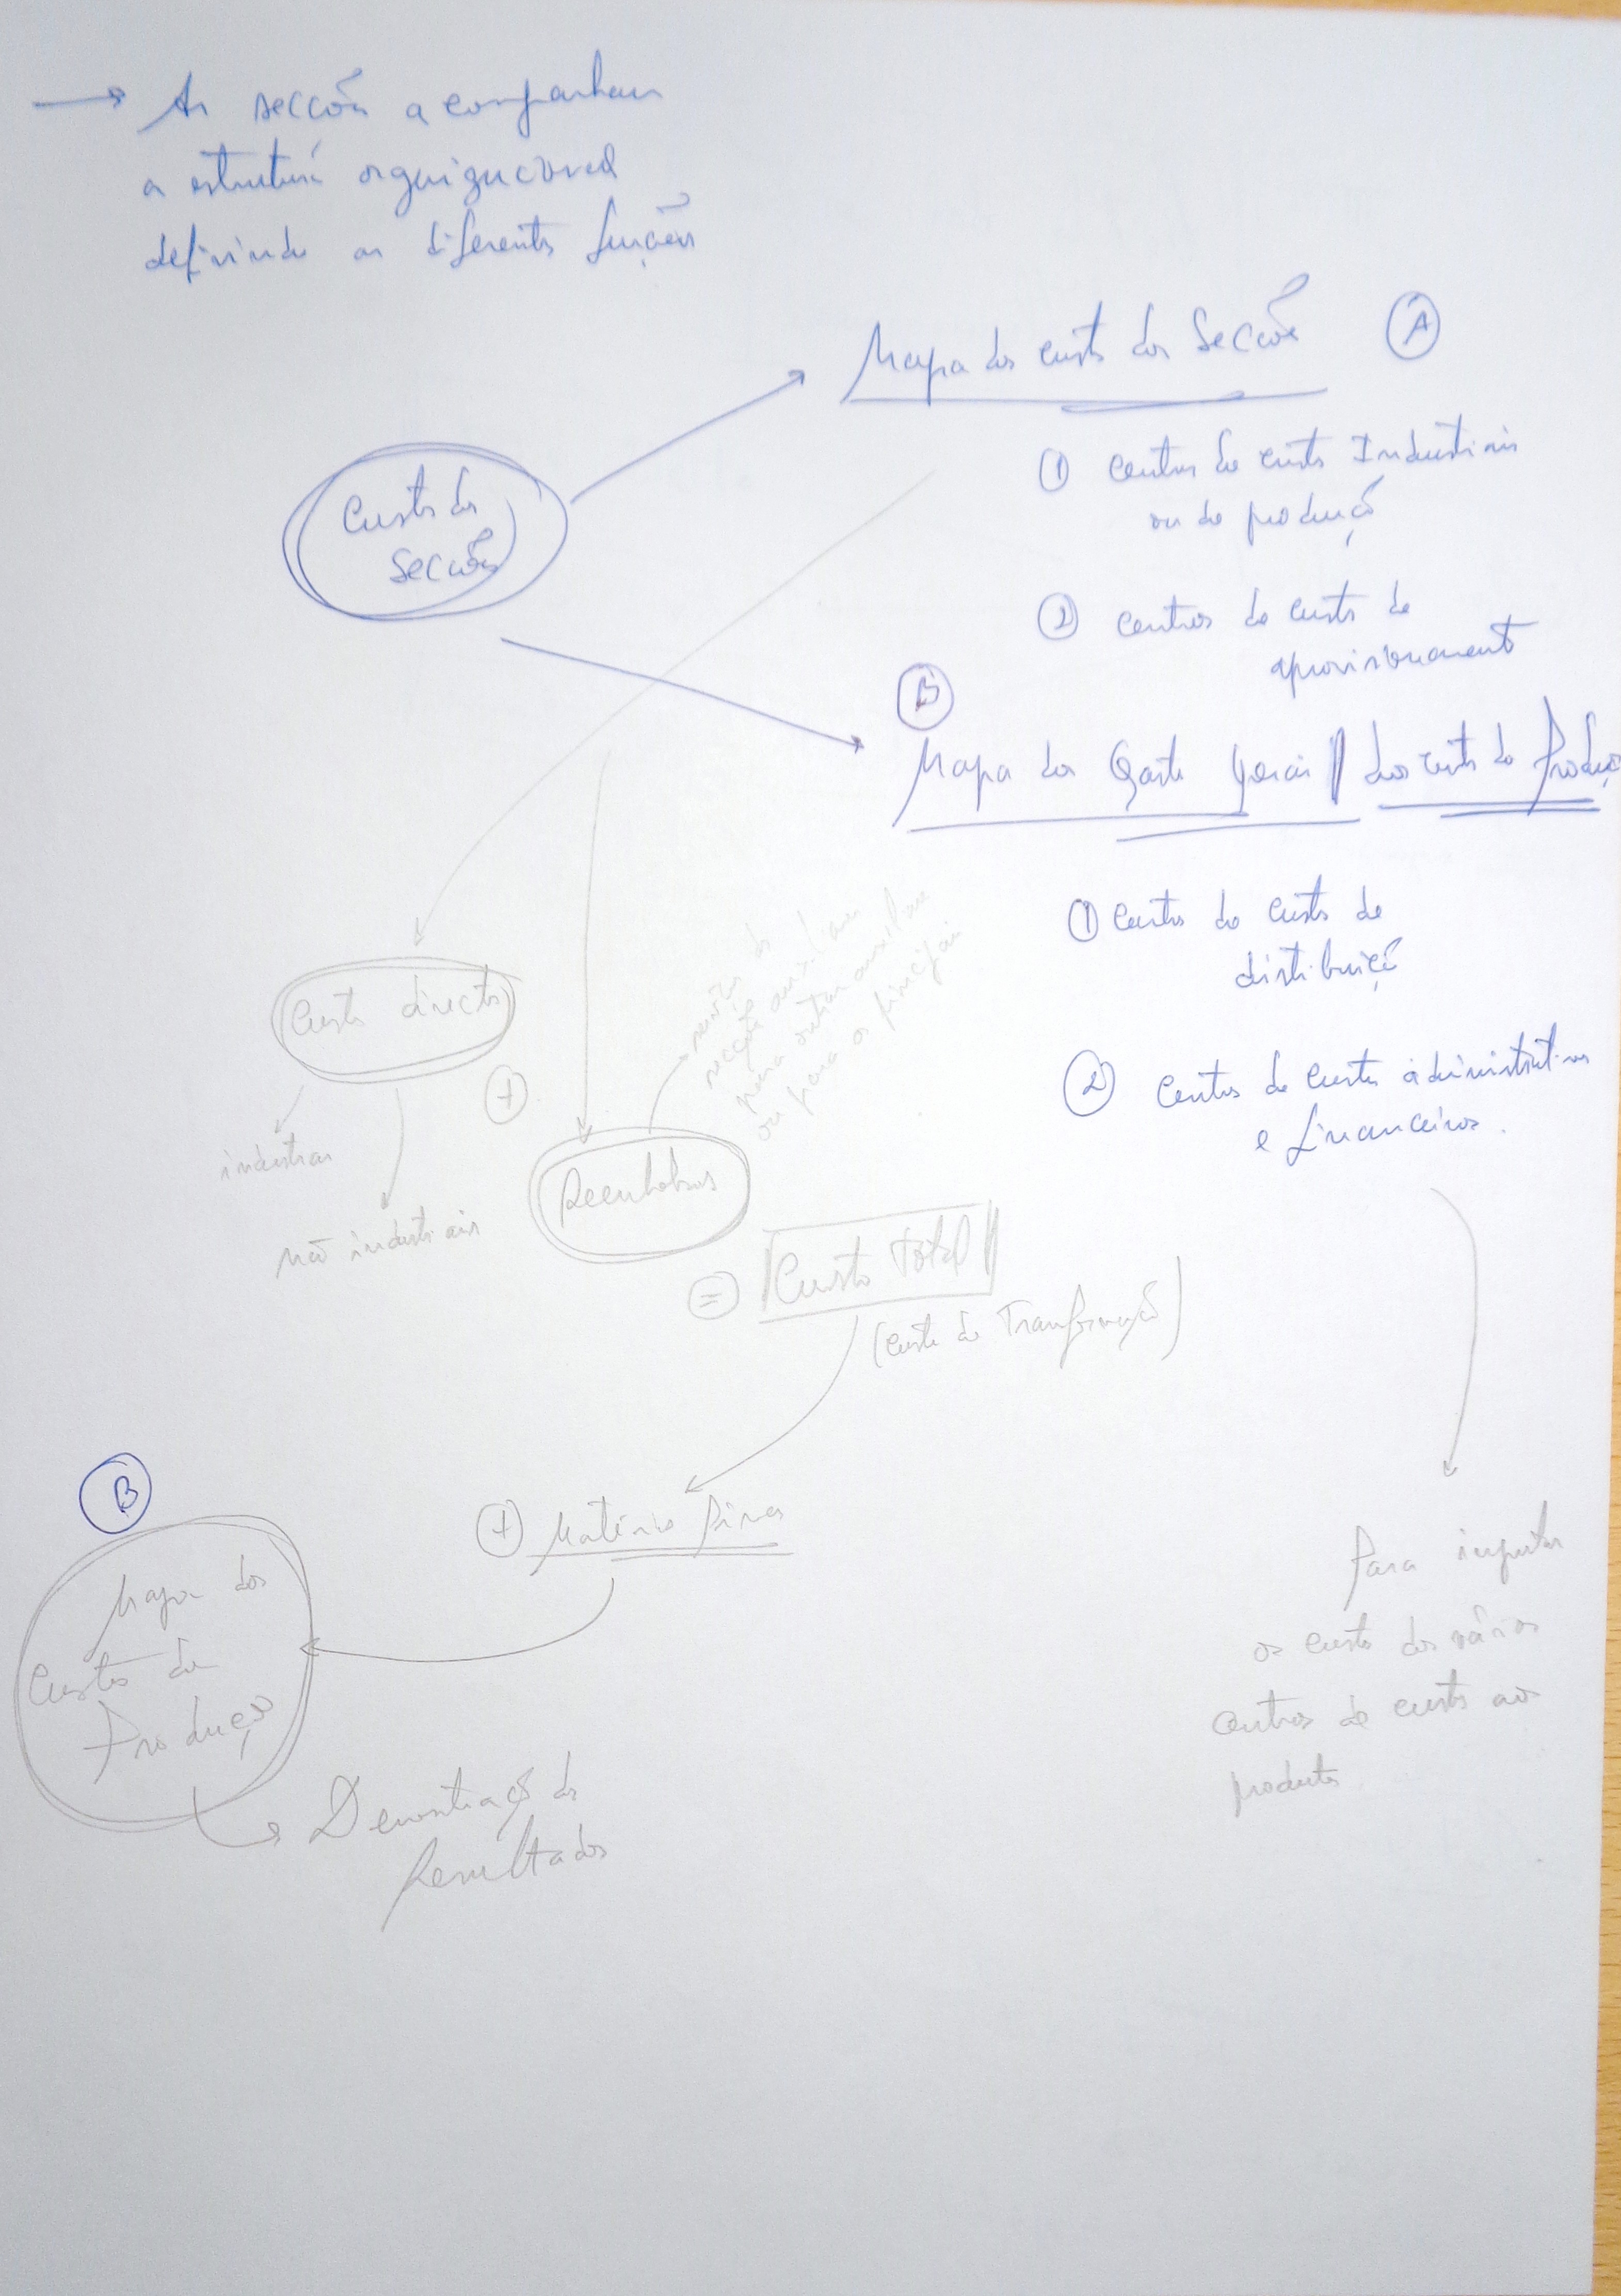 → As secções acompanham
a estrutura organizacional
definindo as diferentes funções
Mapa dos custos das Secções Ⓐ
① Centros de custos Industriais
ou de produção
Custos das
Secções
② centros de custo de
aprovisionamento
Ⓑ
Mapa dos Gastos Gerais || dos custos de Produção
① Centros de custos de
distribuição
② Centros de custos administrativos
e financeiros.
Custos directos
+
industriais
não industriais
Reembolsos
secções auxiliares
para outras auxiliares
ou para as principais
= Custo Total
(custo de Transformação)
+ Matérias Primas
Ⓑ
Mapa dos
Custos de
Produção
Demonstração dos
Resultados
Para imputar
os custos dos vários
centros de custos aos
produtos